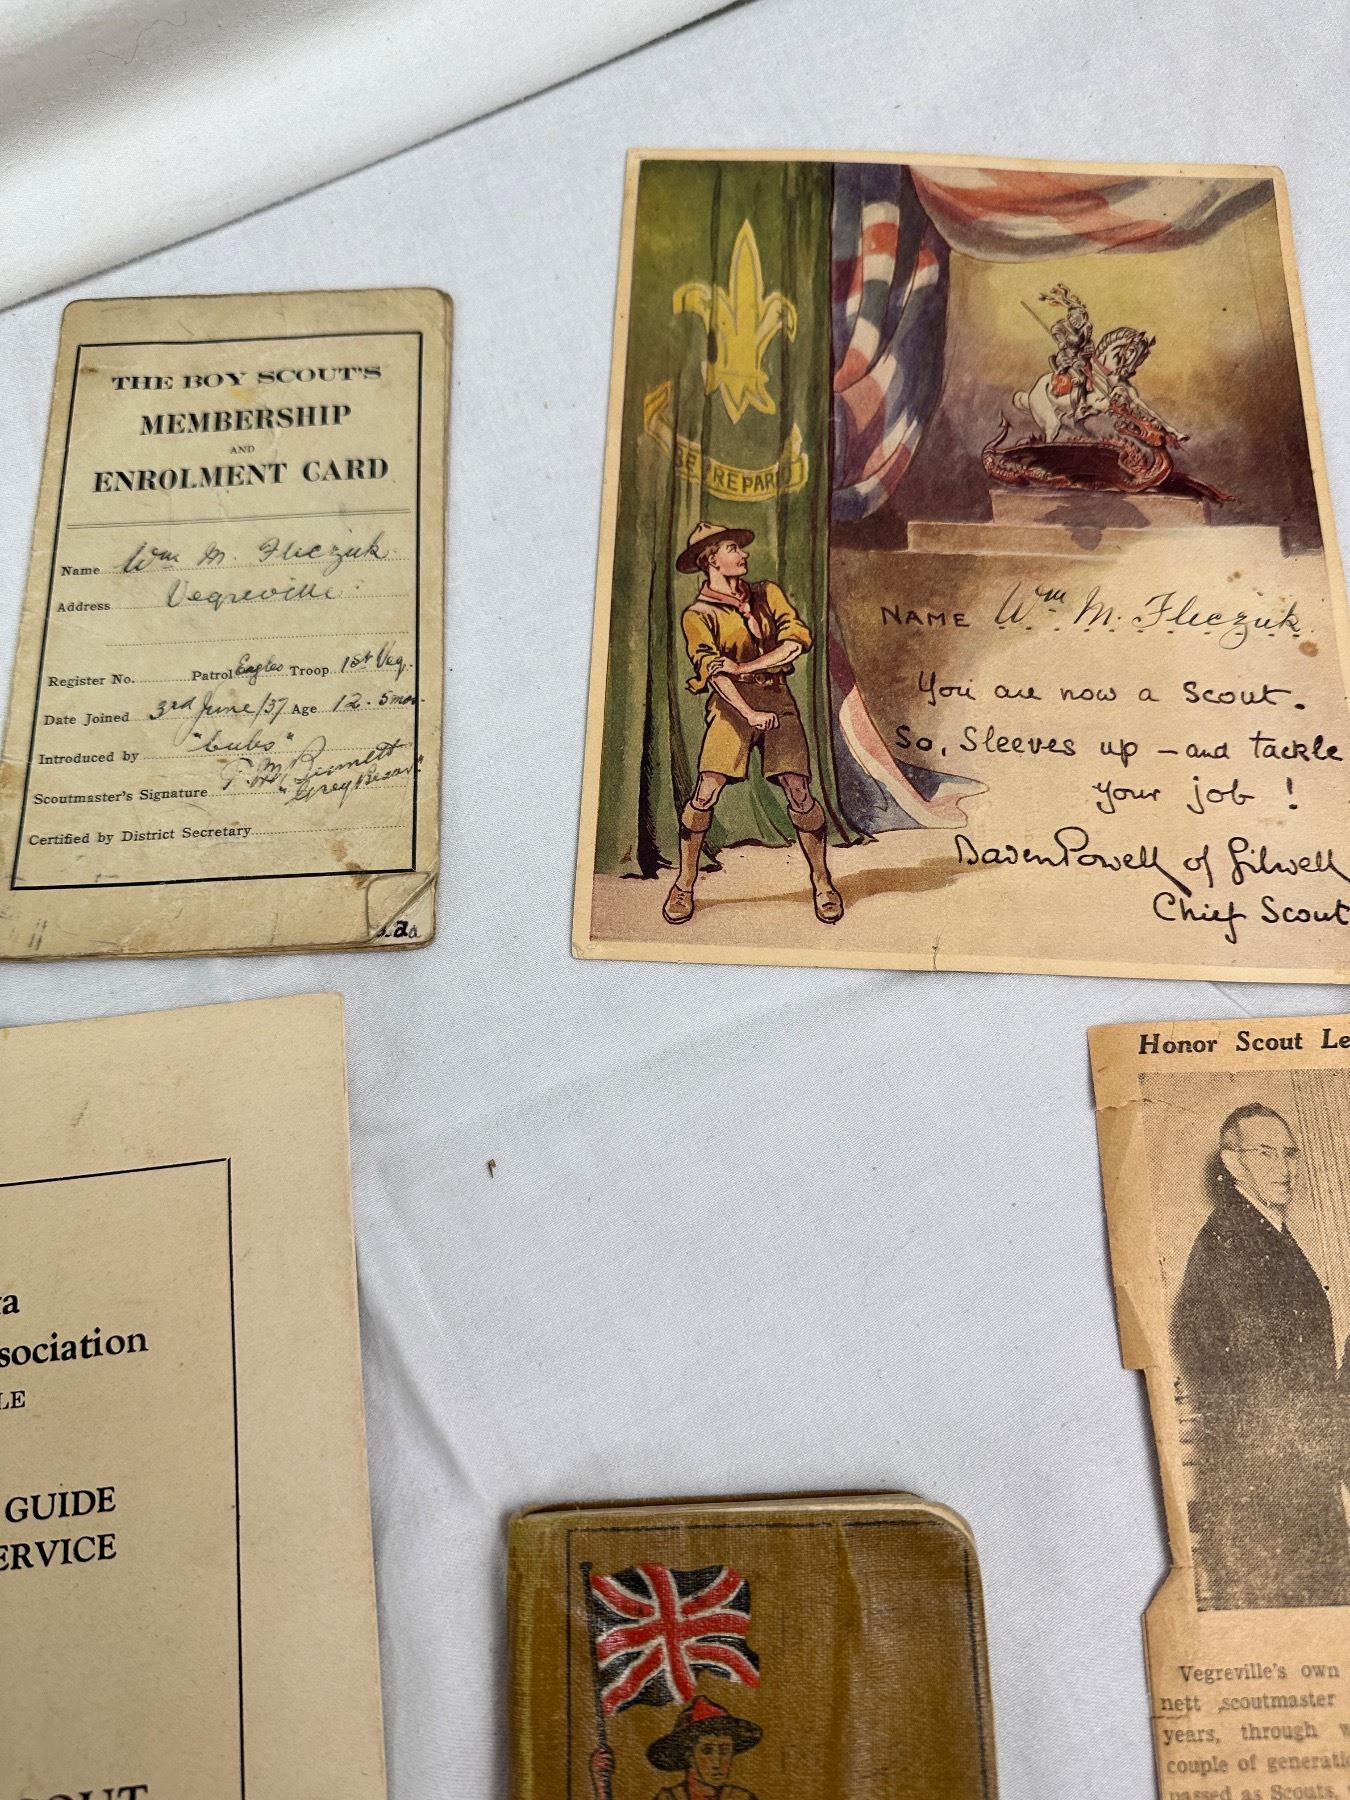 THE BOY SCOUT'S
MEMBERSHIP
AND
ENROLMENT CARD
Name Wm M. Fleczuk
Address Vegreville
Register No. Patrol Eagles Troop 1st Veg.
Date Joined 3rd June/37 Age 12. 5 mos.
Introduced by "Cubs"
Scoutmaster's Signature P. M. Bennett
"Grey Bear"
Certified by District Secretary
BE PREPARED
NAME Wm M. Fleczuk
You are now a Scout.
So, Sleeves up – and tackle
your job !
Baden Powell of Gilwell
Chief Scout
sociation
GUIDE
ERVICE
Honor Scout Le
Vegreville's own
nett scoutmaster
years, through
couple of generati
passed as Scouts,